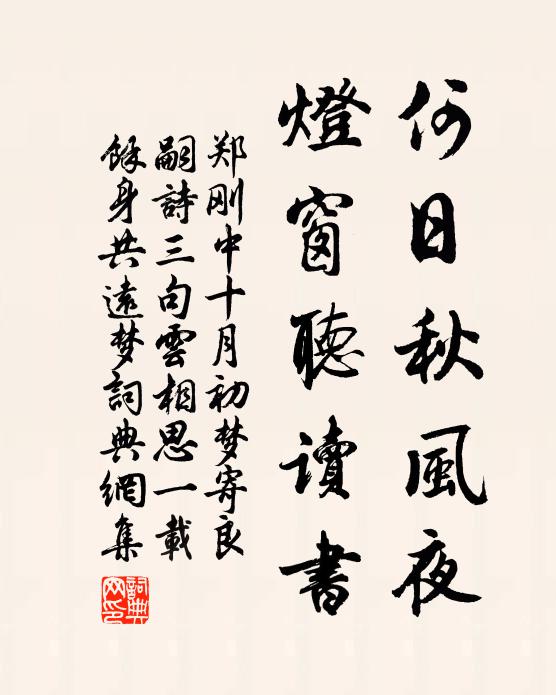 何日秋風夜
燈窗聽讀書
郑刚中十月初梦寄良
嗣詩三句雲相思一載
餘身共遠梦詞典網集
詞典网印